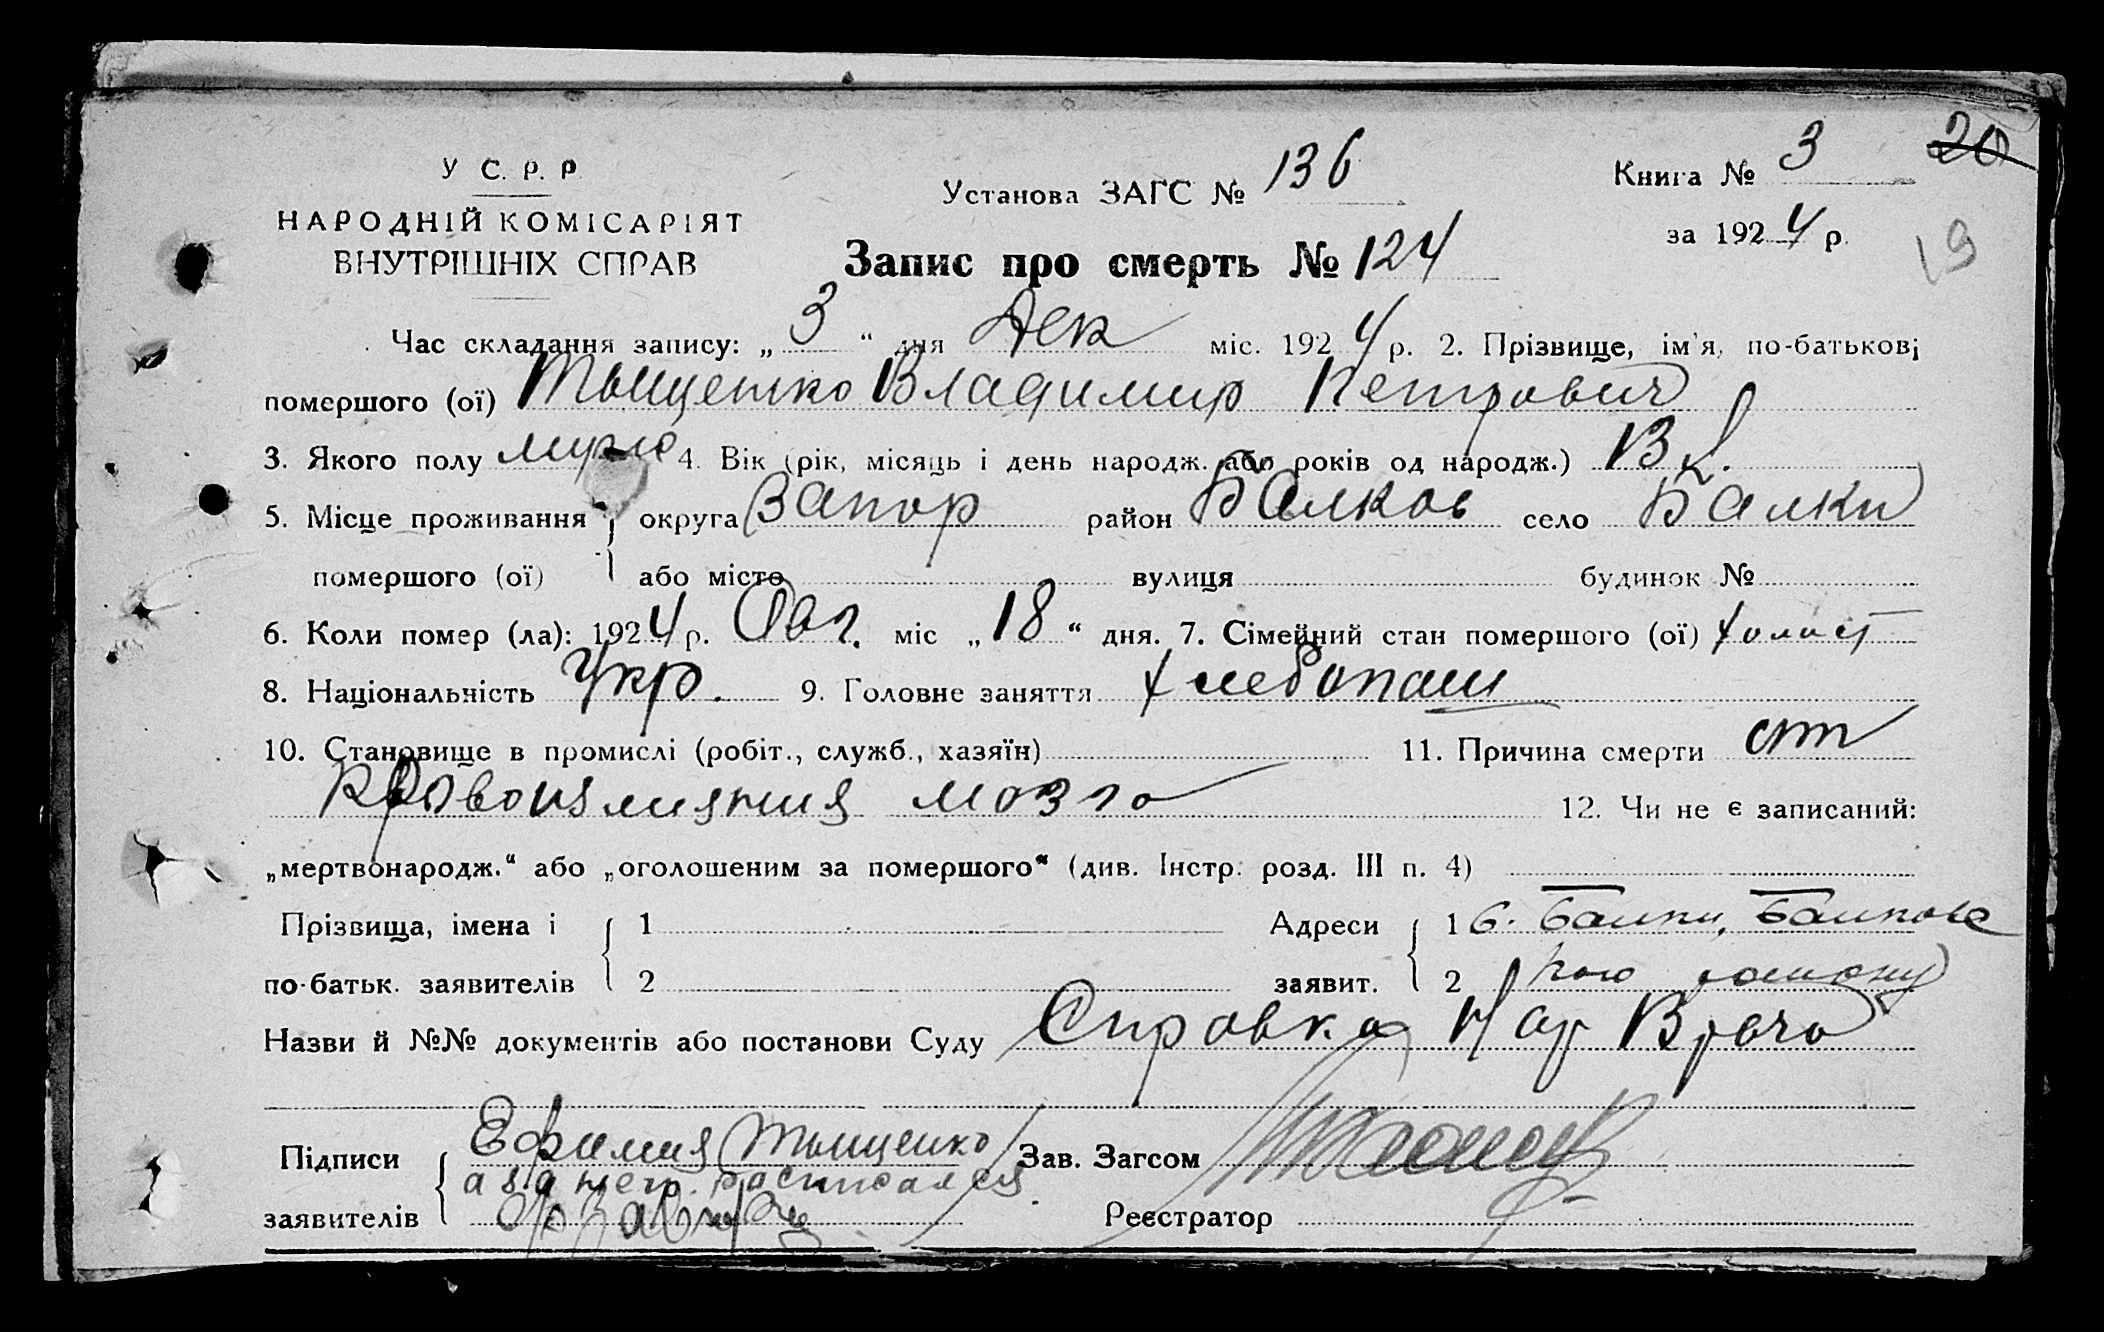 У С. Р. Р
Установа ЗАГС № 136
Книга № 3
20
НАРОДНІЙ КОМІСАРІЯТ
ВНУТРІШНІХ СПРАВ
за 1924 р.
19
Запис про смерть № 124
Час складання запису: „3“ дня Дек міс. 1924 р. 2. Прізвище, ім'я, по-батькові
помершого (ої) Тыщенко Владимир Петрович
3. Якого полу муже 4. Вік (рік, місяць і день народж. або років од народж.) 13 л.
5. Місце проживання округа Запор район Балков село Балки
помершого (ої) або місто вулиця будинок №
6. Коли помер (ла): 1924 р. Авг. міс „18“ дня. 7. Сімейний стан помершого (ої) холост
8. Національність Укр. 9. Головне заняття хлебопаш
10. Становище в промислі (робіт., служб., хазяїн) 11. Причина смерти от
кровоизлияния мозга 12. Чи не є записаний:
„мертвонародж.“ або „оголошеним за помершого“ (див. Інстр. розд. III п. 4)
Прізвища, імена і 1 Адреси 1 с. Балки, Балков
по-батьк. заявителів 2 заявит. 2
Назви й №№ документів або постанови Суду Справка Нар Врача
Підписи Ефимия Тыщенко Зав. Загсом
а за негр. расписался
заявителів Реєстратор